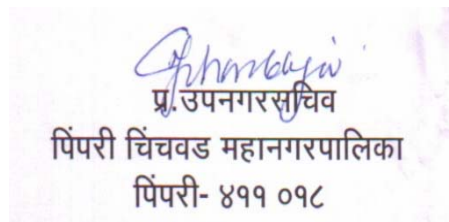 प्र.उपनगरसचिव
पिंपरी चिंचवड महानगरपालिका
पिंपरी- ४११ ०१८